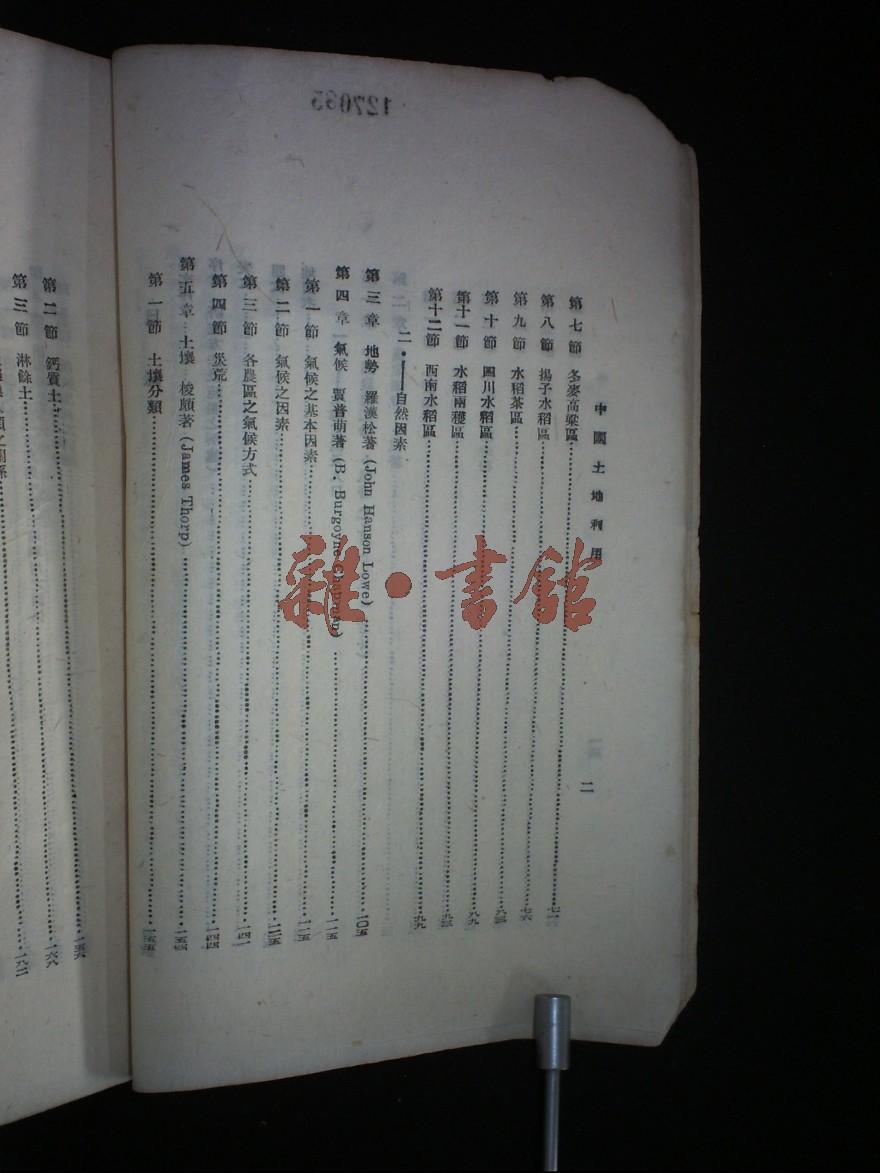 127035
中國土地利用
二
第七節 冬麥高粱區……七一
第八節 揚子水稻區……七六
第九節 水稻茶區……八四
第十節 四川水稻區……八九
第十一節 水稻兩穫區……九四
第十二節 西南水稻區……九九
二·——自然因素
第三章 地勢 羅漢松著(John Hanson Lowe)……一〇五
第四章 氣候 賈普萌著(B. Burgoyne Chapman)……一一五
第一節 氣候之基本因素……一一五
第二節 氣候之因素
第三節 各農區之氣候方式……一四一
第四節 災荒……一四四
第五章 土壤 梭頗著(James Thorp)……一五四
第一節 土壤分類……一五五
第二節 鈣質土
第三節 淋餘土……一六二
雜·書館